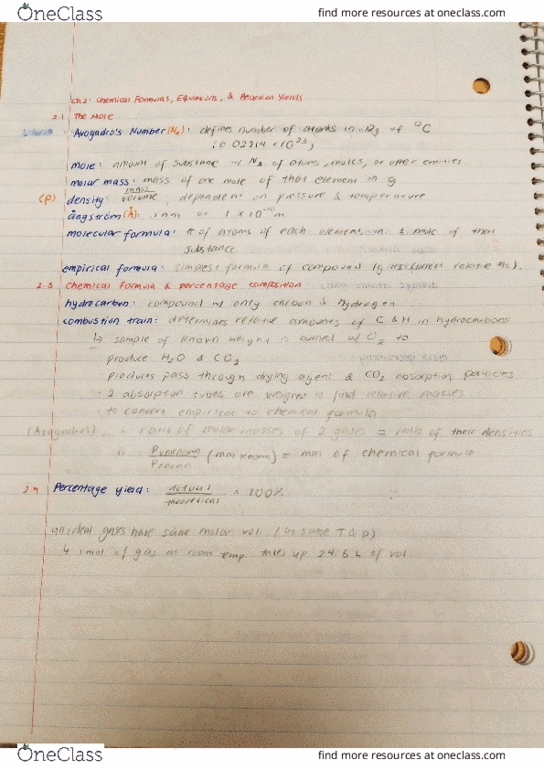 OneClass
find more resources at oneclass.com
Ch 2: Chemical Formulas, Equations, & Reaction Yields
2.1 The Mole
Avogadro's Number (NA): defines number of atoms in 12g of 12C
(6.02214 × 10^23)
mole: amount of substance w/ NA of atoms, molcs, or other entities.
molar mass: mass of one mole of that element in g
(ρ) density mass/volume, dependent on pressure & temperature
ångström (Å): 1 nm or 1 × 10^-10 m
molecular formula: # of atoms of each element in 1 mole of that
substance
empirical formula: simplest formula of compound relative
2.3 Chemical Formula & percentage composition
hydrocarbon: compound w/ only carbon & hydrogen
combustion train: determines relative amounts of C & H in hydrocarbons
↳ sample of known weight is burned w/ O2 to
produce H2O & CO2
products pass through drying agent & CO2 absorption particles
2 absorption tubes are weighed to find relative masses
to convert empirical to chemical formula
(Avogadro's) ratio of molar masses of 2 gases = ratio of their densities
(mm known) = mm of chemical formula
2.4 Percentage yield: actual/theoretical × 100%
all ideal gases have same molar vol. (at same T & P)
↳ 1 mol of gas at room temp. takes up 24.5 L of vol.
OneClass
find more resources at oneclass.com